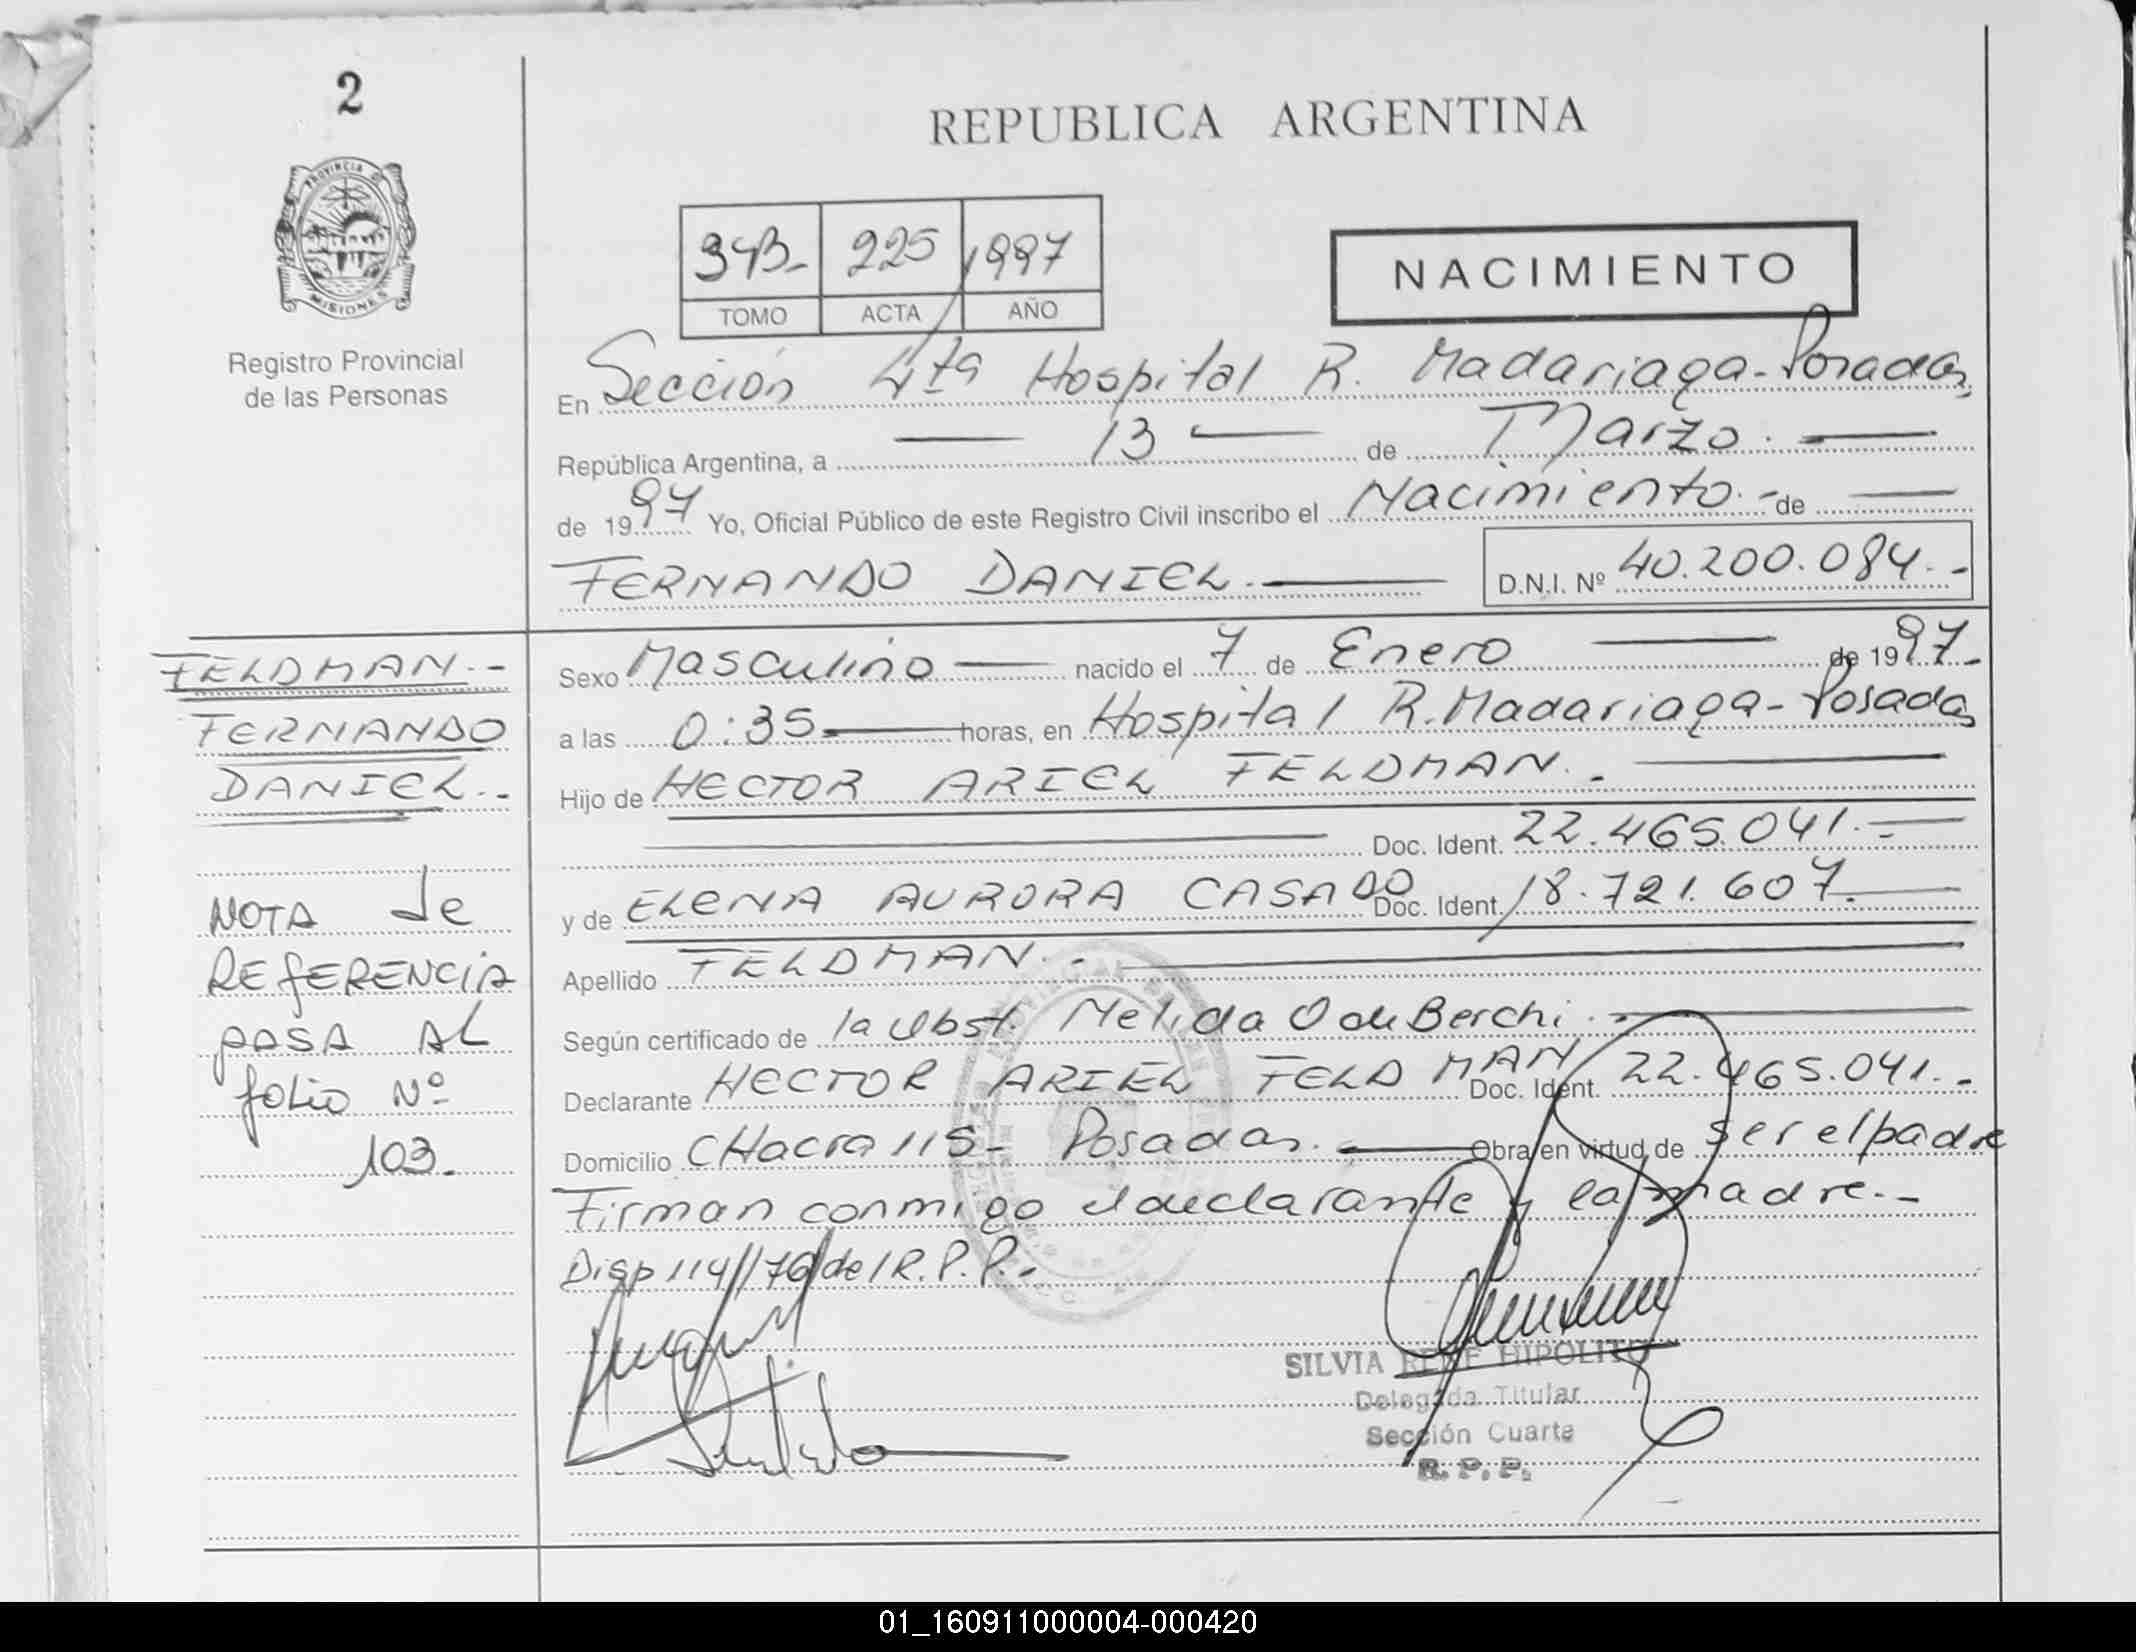 2
PROVINCIA D
MISIONES
Registro Provincial
de las Personas
REPUBLICA ARGENTINA
343- 225 1997
TOMO ACTA AÑO
NACIMIENTO
En Sección 4ta Hospital R. Madariaga-Posadas
República Argentina, a 13 de Marzo.
de 1997 Yo, Oficial Público de este Registro Civil inscribo el Nacimiento.- de
FERNANDO DANIEL. D.N.I. Nº 40.200.084.-
Sexo Masculino nacido el 7 de Enero de 1997.-
a las 0:35 horas, en Hospital R. Madariaga-Posadas
Hijo de HECTOR ARIEL FELDMAN.-
Doc. Ident. 22.465.041.-
y de ELENA AURORA CASADO Doc. Ident. 18.721.607.
Apellido FELDMAN.-
Según certificado de la Obst. Melida O de Berchi.
Declarante HECTOR ARIEL FELDMAN Doc. Ident. 22.465.041.-
Domicilio CHacra 115- Posadas. Obra en virtud de ser el padre
Firman conmigo el declarante y la madre.-
Disp 114//76/del R.P.P.-
SILVIA RENE HIPOLITO
Delegada Titular
Sección Cuarta
R. P. P.
FELDMAN.-
FERNANDO
DANIEL.-
NOTA de
REfERENCIA
pASA AL
folio Nº
103.
01_160911000004-000420